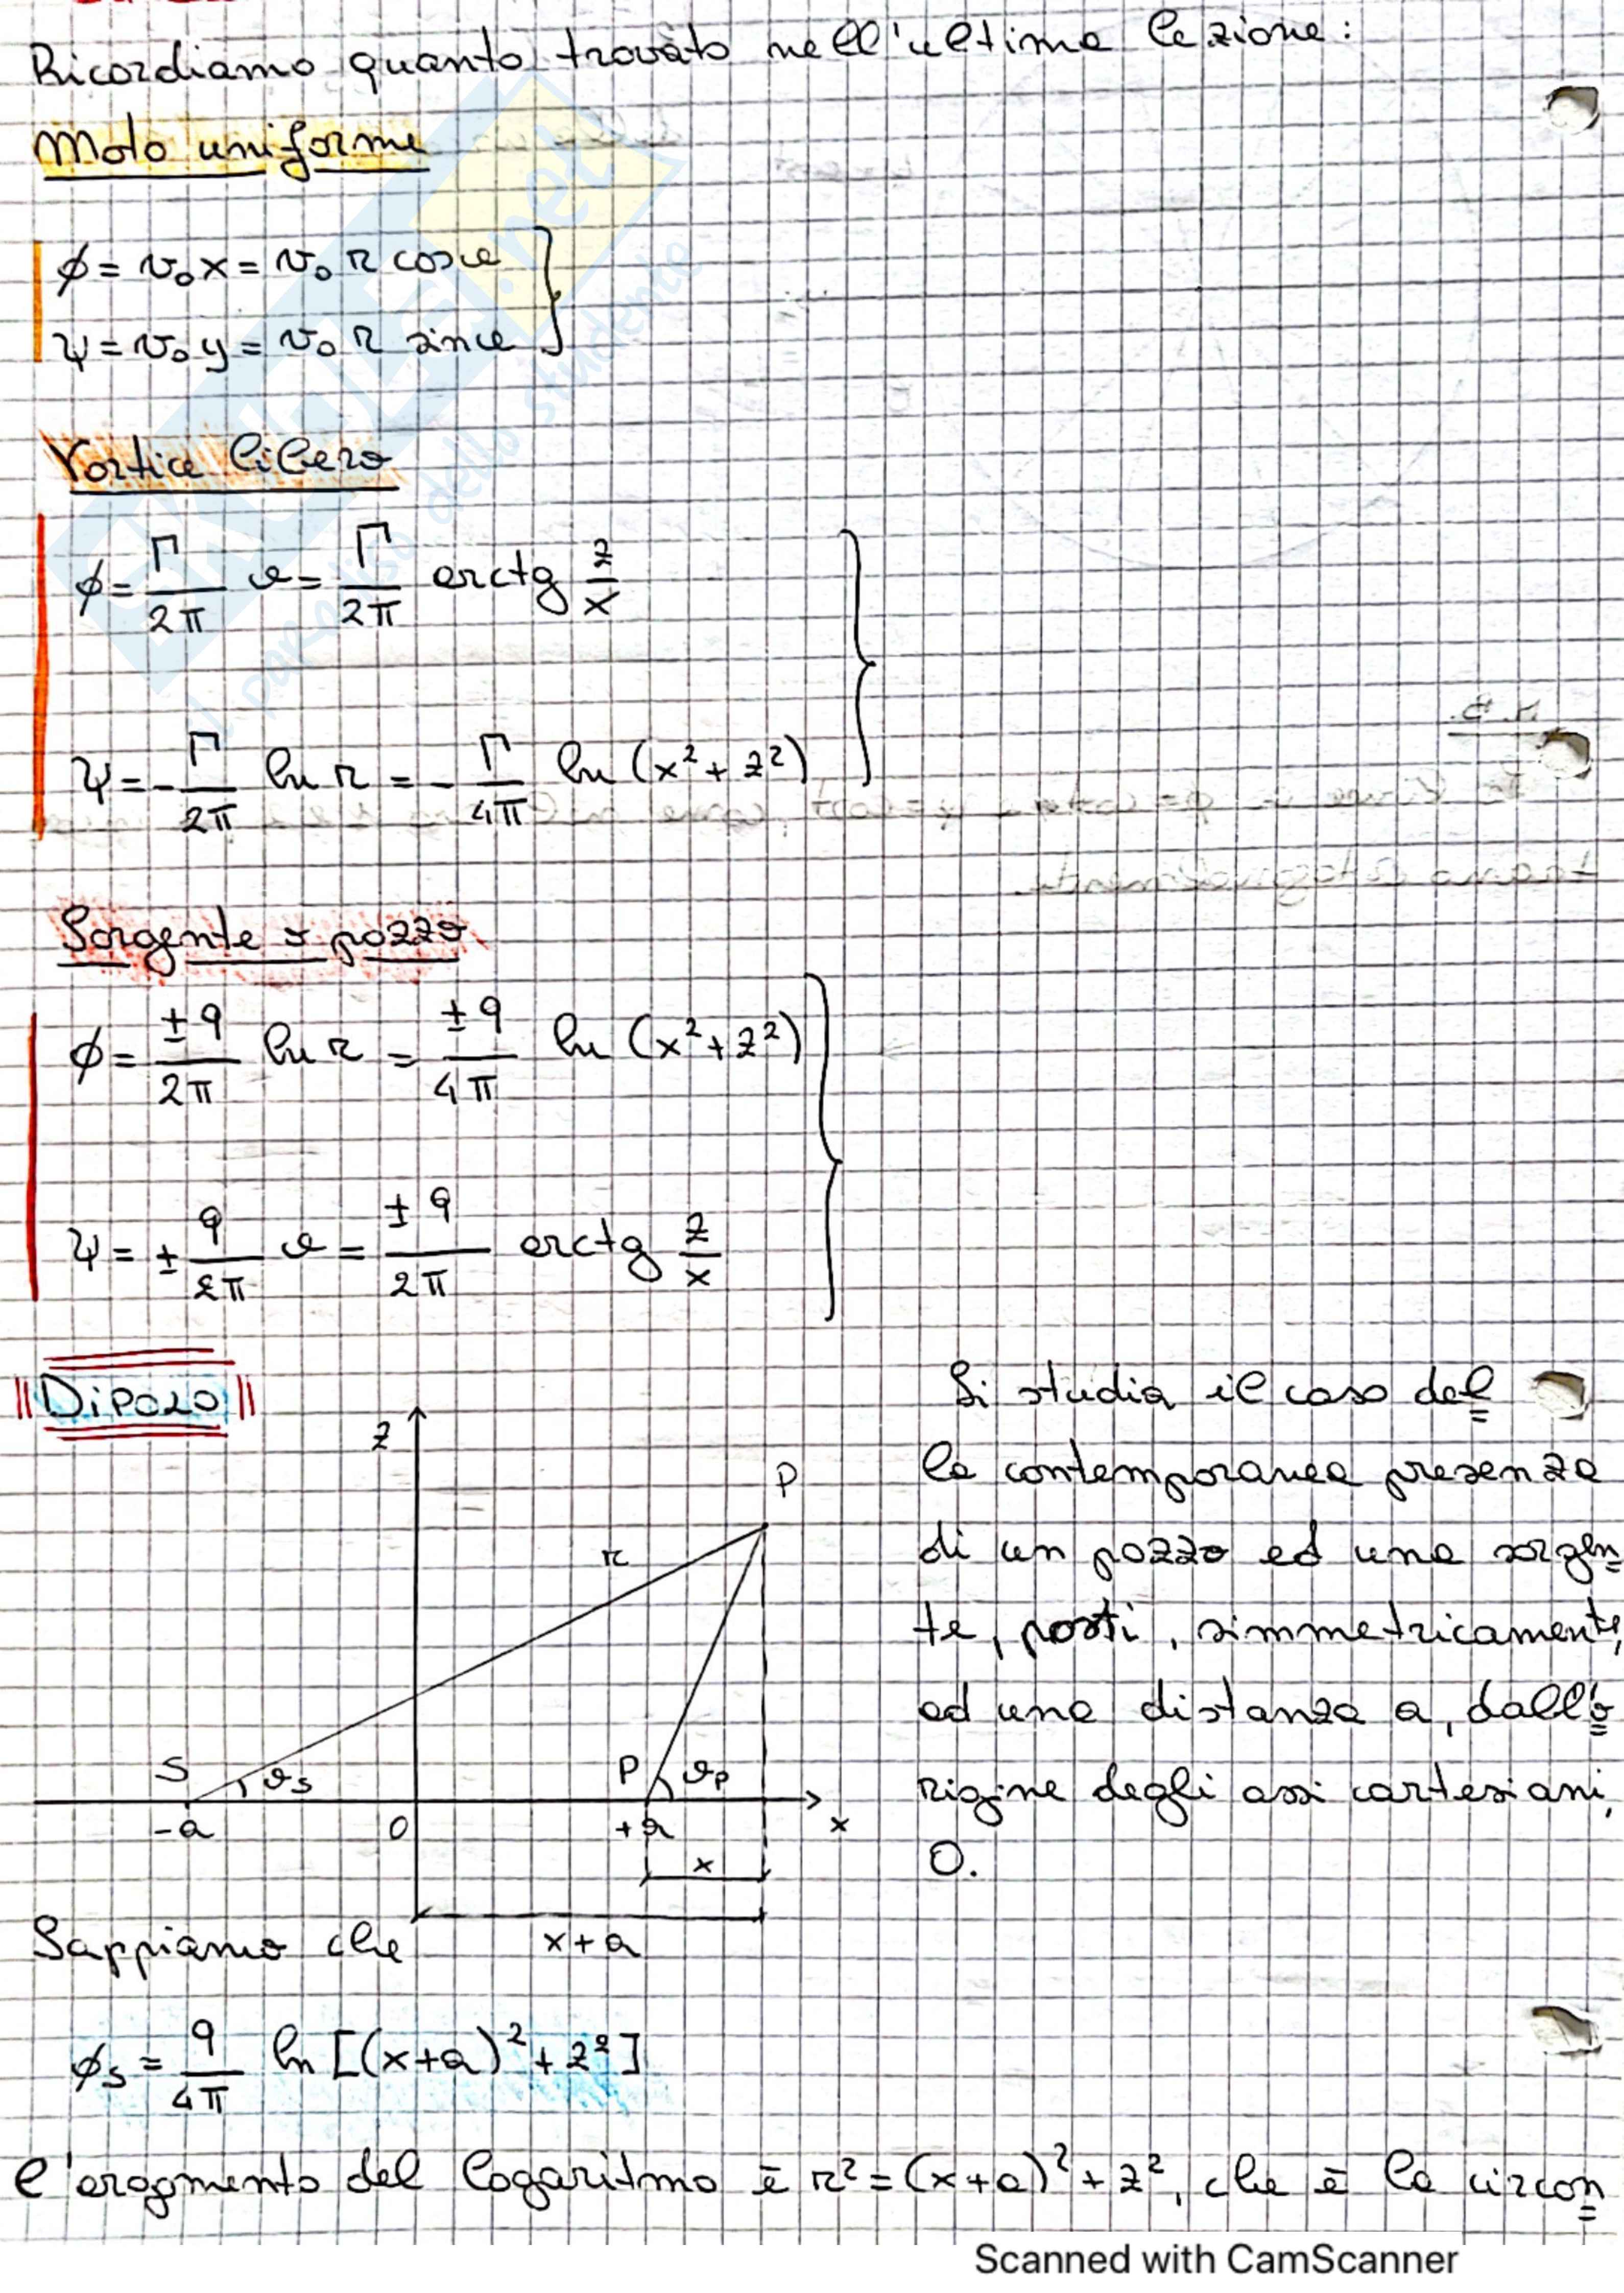 Ricordiamo quanto trovato nell'ultima lezione:
Moto uniforme
ϕ = v₀x = v₀ r cosϑ
ψ = v₀y = v₀ r sinϑ
Vortice libero
ϕ = Γ/2π ϑ = Γ/2π arctg z/x
ψ = - Γ/2π ln r = - Γ/4π ln (x² + z²)
Sorgente o pozzo
ϕ = ±q/2π ln r = ±q/4π ln (x² + z²)
ψ = ± q/2π ϑ = ±q/2π arctg z/x
DIPOLO
Si studia il caso del
la contemporanea presenza
di un pozzo ed una sorgen
te, posti, simmetricamente,
ad una distanza a, dall'o
rigine degli assi cartesiani,
O.
z
P
r
S
ϑs
P
ϑp
-a
O
+a
x
x
x+a
Sappiamo che
ϕs = q/4π ln [(x+a)² + z²]
l'aragmento del logaritmo è r² = (x+a)² + z², che è la circon
Scanned with CamScanner
SKUOLA.net
il paradiso dello studente